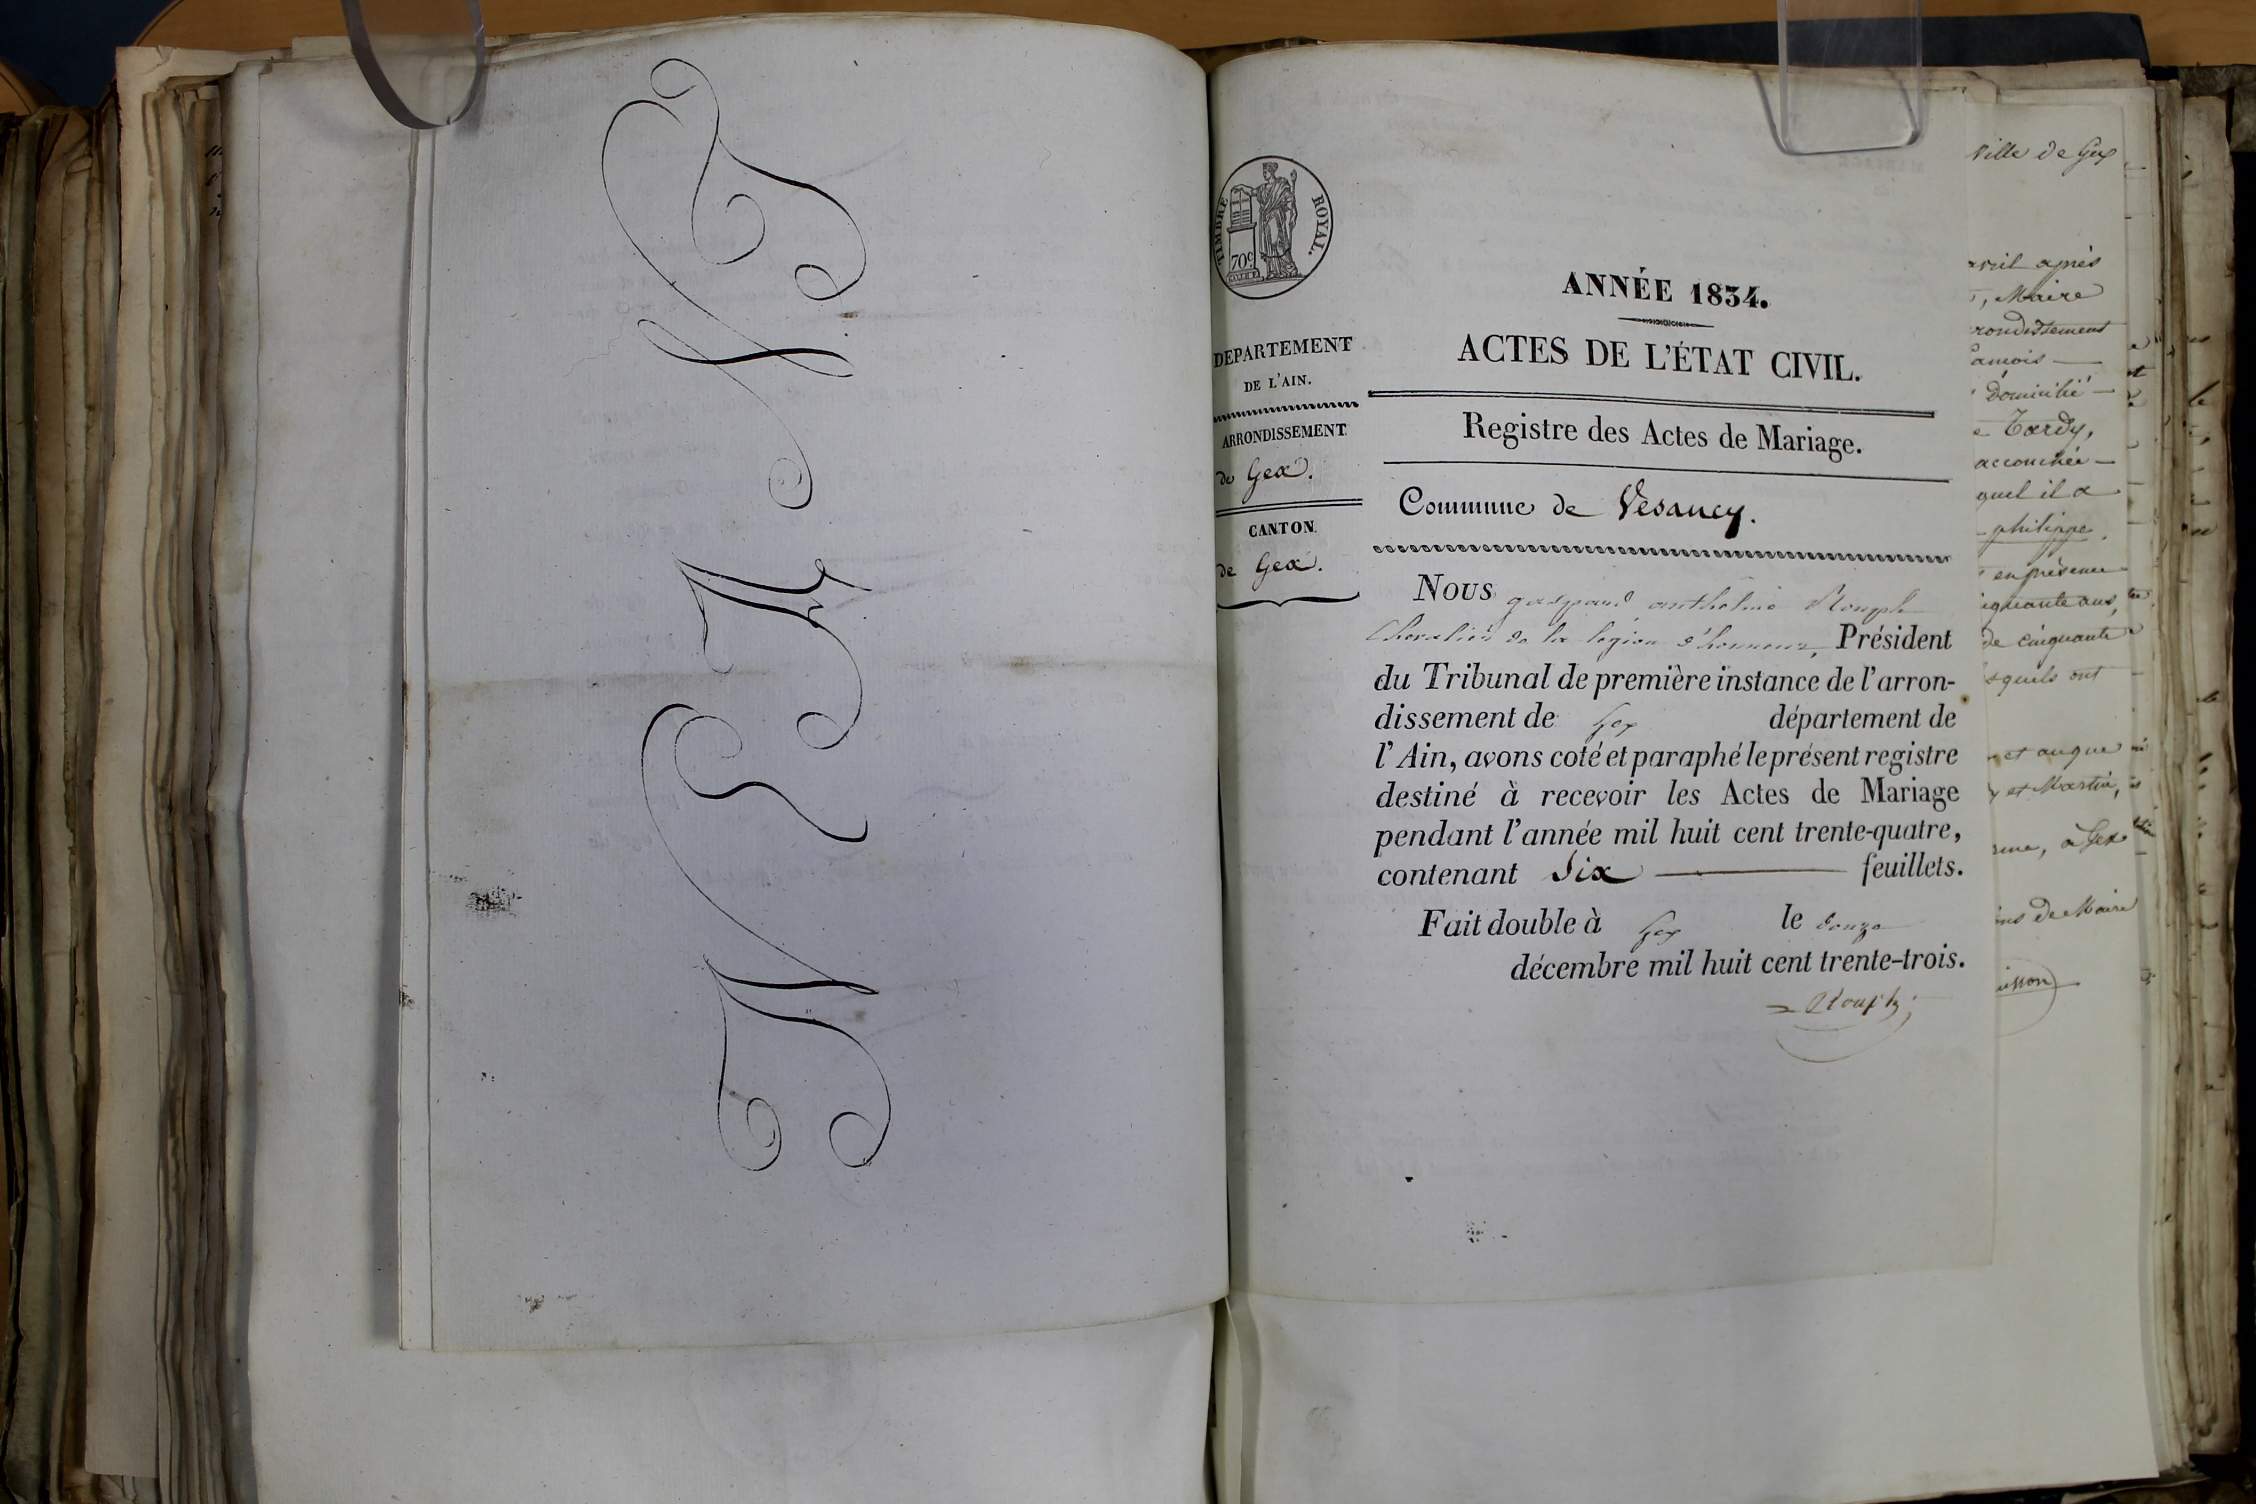 TIMBRE ROYAL.
70c.
DEPARTEMENT
DE L'AIN.
ARRONDISSEMENT
de Gex.
CANTON
de Gex.
ANNÉE 1834.
ACTES DE L'ÉTAT CIVIL.
Registre des Actes de Mariage.
Commune de Vesancy.
Nous gaspard anthelme
Chevalier de la légion d'honneur, Président
du Tribunal de première instance de l'arron-
dissement de Gex département de
l'Ain, avons coté et paraphé le présent registre
destiné à recevoir les Actes de Mariage
pendant l'année mil huit cent trente-quatre,
contenant Six feuillets.
Fait double à Gex le douze
décembre mil huit cent trente-trois.
ville de Gex
avril après
, Maire
rondissement
domicilié
Tardy,
accouchée
quel il a
philippe.
en présence
iquante ans,
de cinquante
squels ont
et au que
et Martin,
, à Gex
ons de Maire
uisson